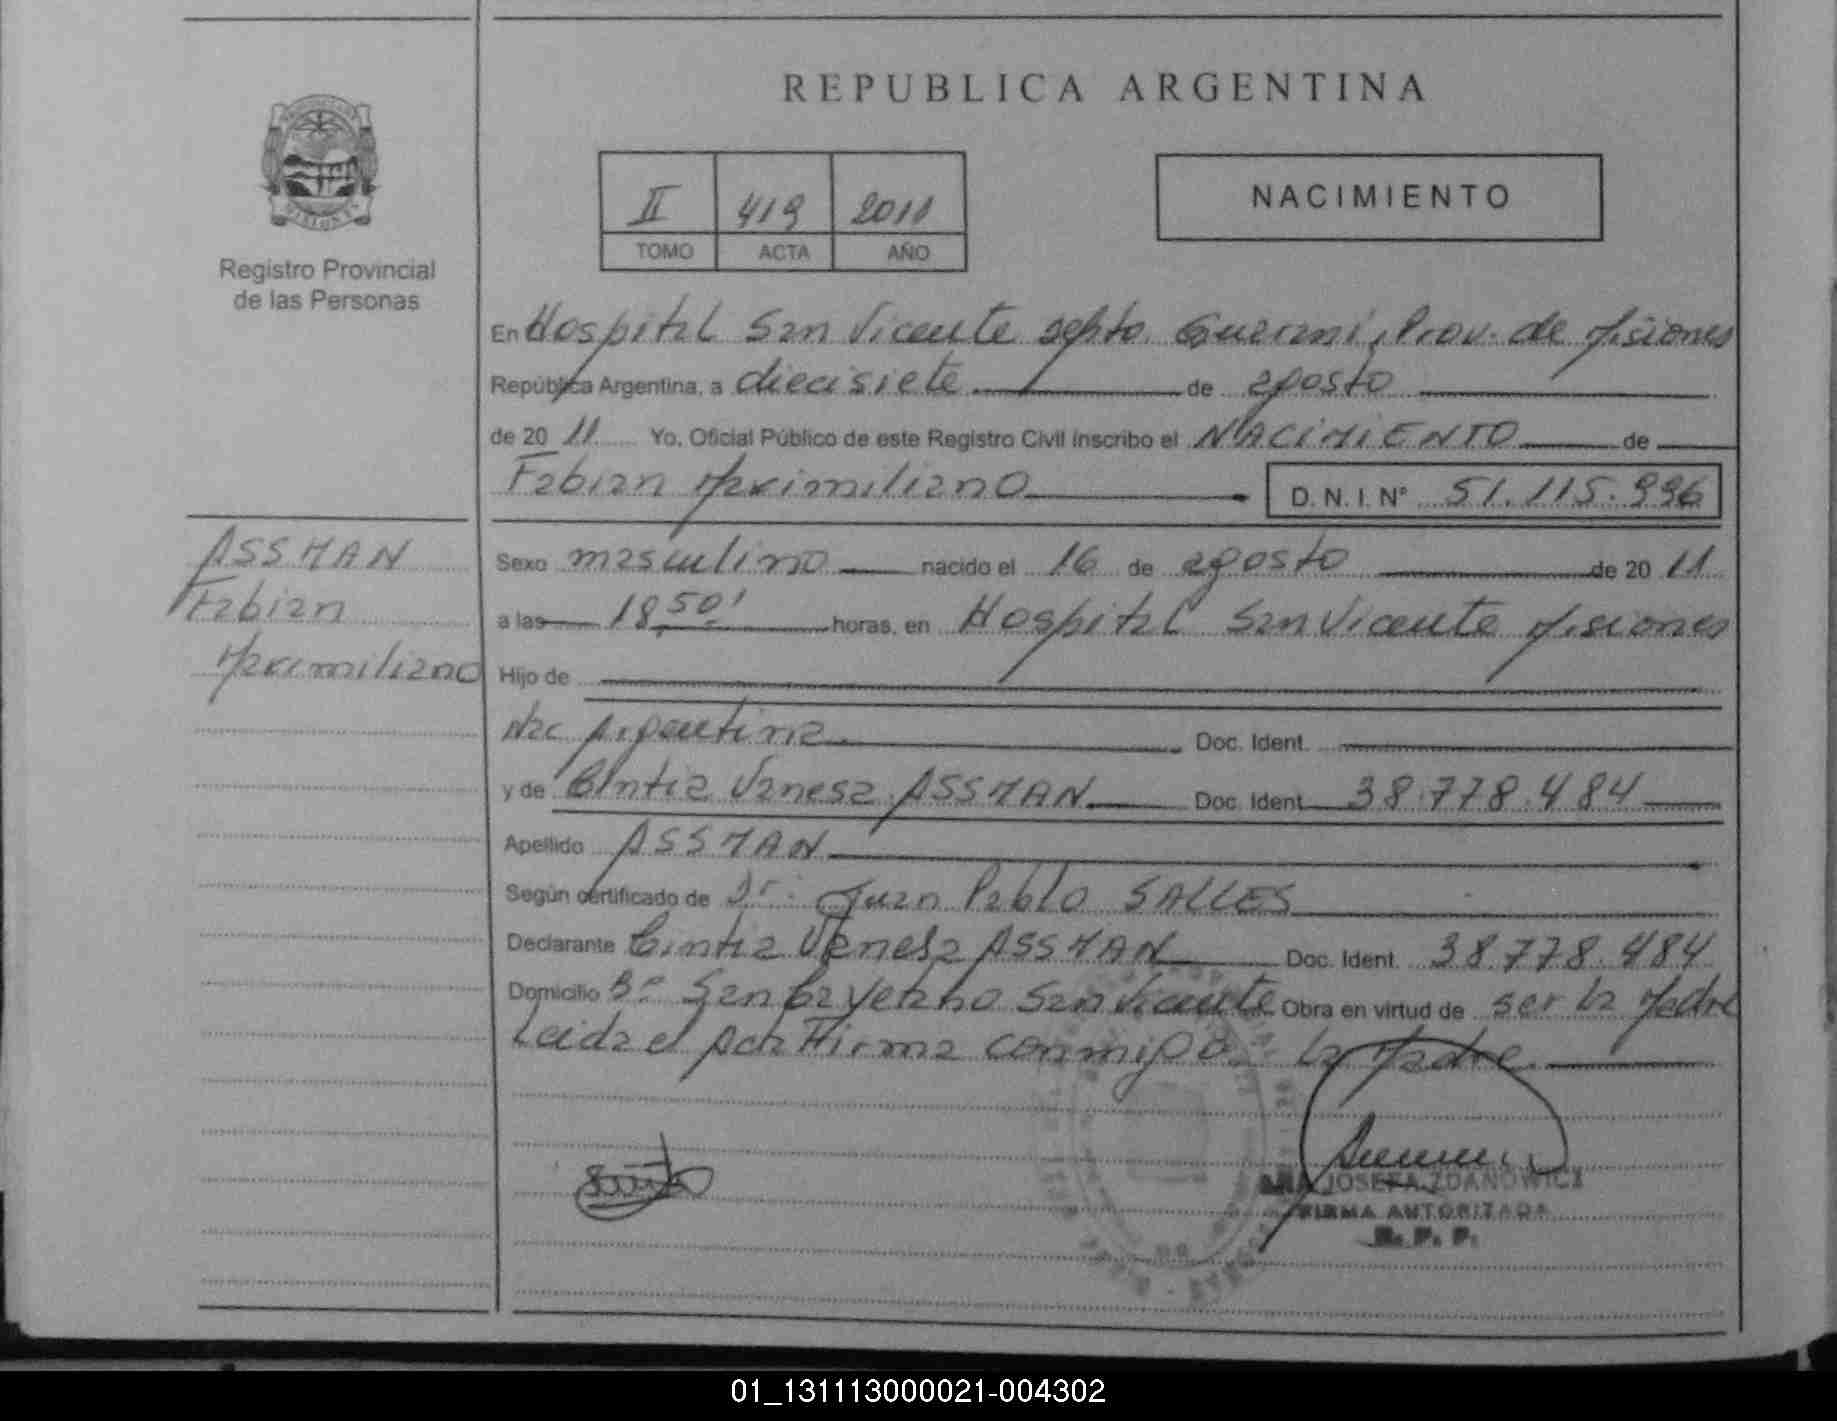 REPUBLICA ARGENTINA
II 419 2011
TOMO ACTA AÑO
NACIMIENTO
Registro Provincial
de las Personas
En Hospital San Vicente Depto. Guarani, Prov. de Misiones
República Argentina, a diecisiete de agosto
de 20 11 Yo, Oficial Público de este Registro Civil inscribo el NACIMIENTO de
Fabian Maximiliano D. N. I. N° 51.115.996
ASSMAN
Fabian
Maximiliano
Sexo masculino nacido el 16 de agosto de 20 11
a las 18,50' horas, en Hospital San Vicente Misiones
Hijo de
Nac Argentina Doc. Ident.
y de Cintia Vanesa ASSMAN Doc. Ident. 38.778.484
Apellido ASSMAN
Según certificado de Dr. Juan Pablo SALLES
Declarante Cintia Vanesa ASSMAN Doc. Ident. 38.778.484
Domicilio B° San Cayetano San Vicente Obra en virtud de ser la Madre
Leida el Acta Firma conmigo la Madre.
JOSEFA ZDANOWICZ
FIRMA AUTORIZADA
R. P. P.
01_131113000021-004302